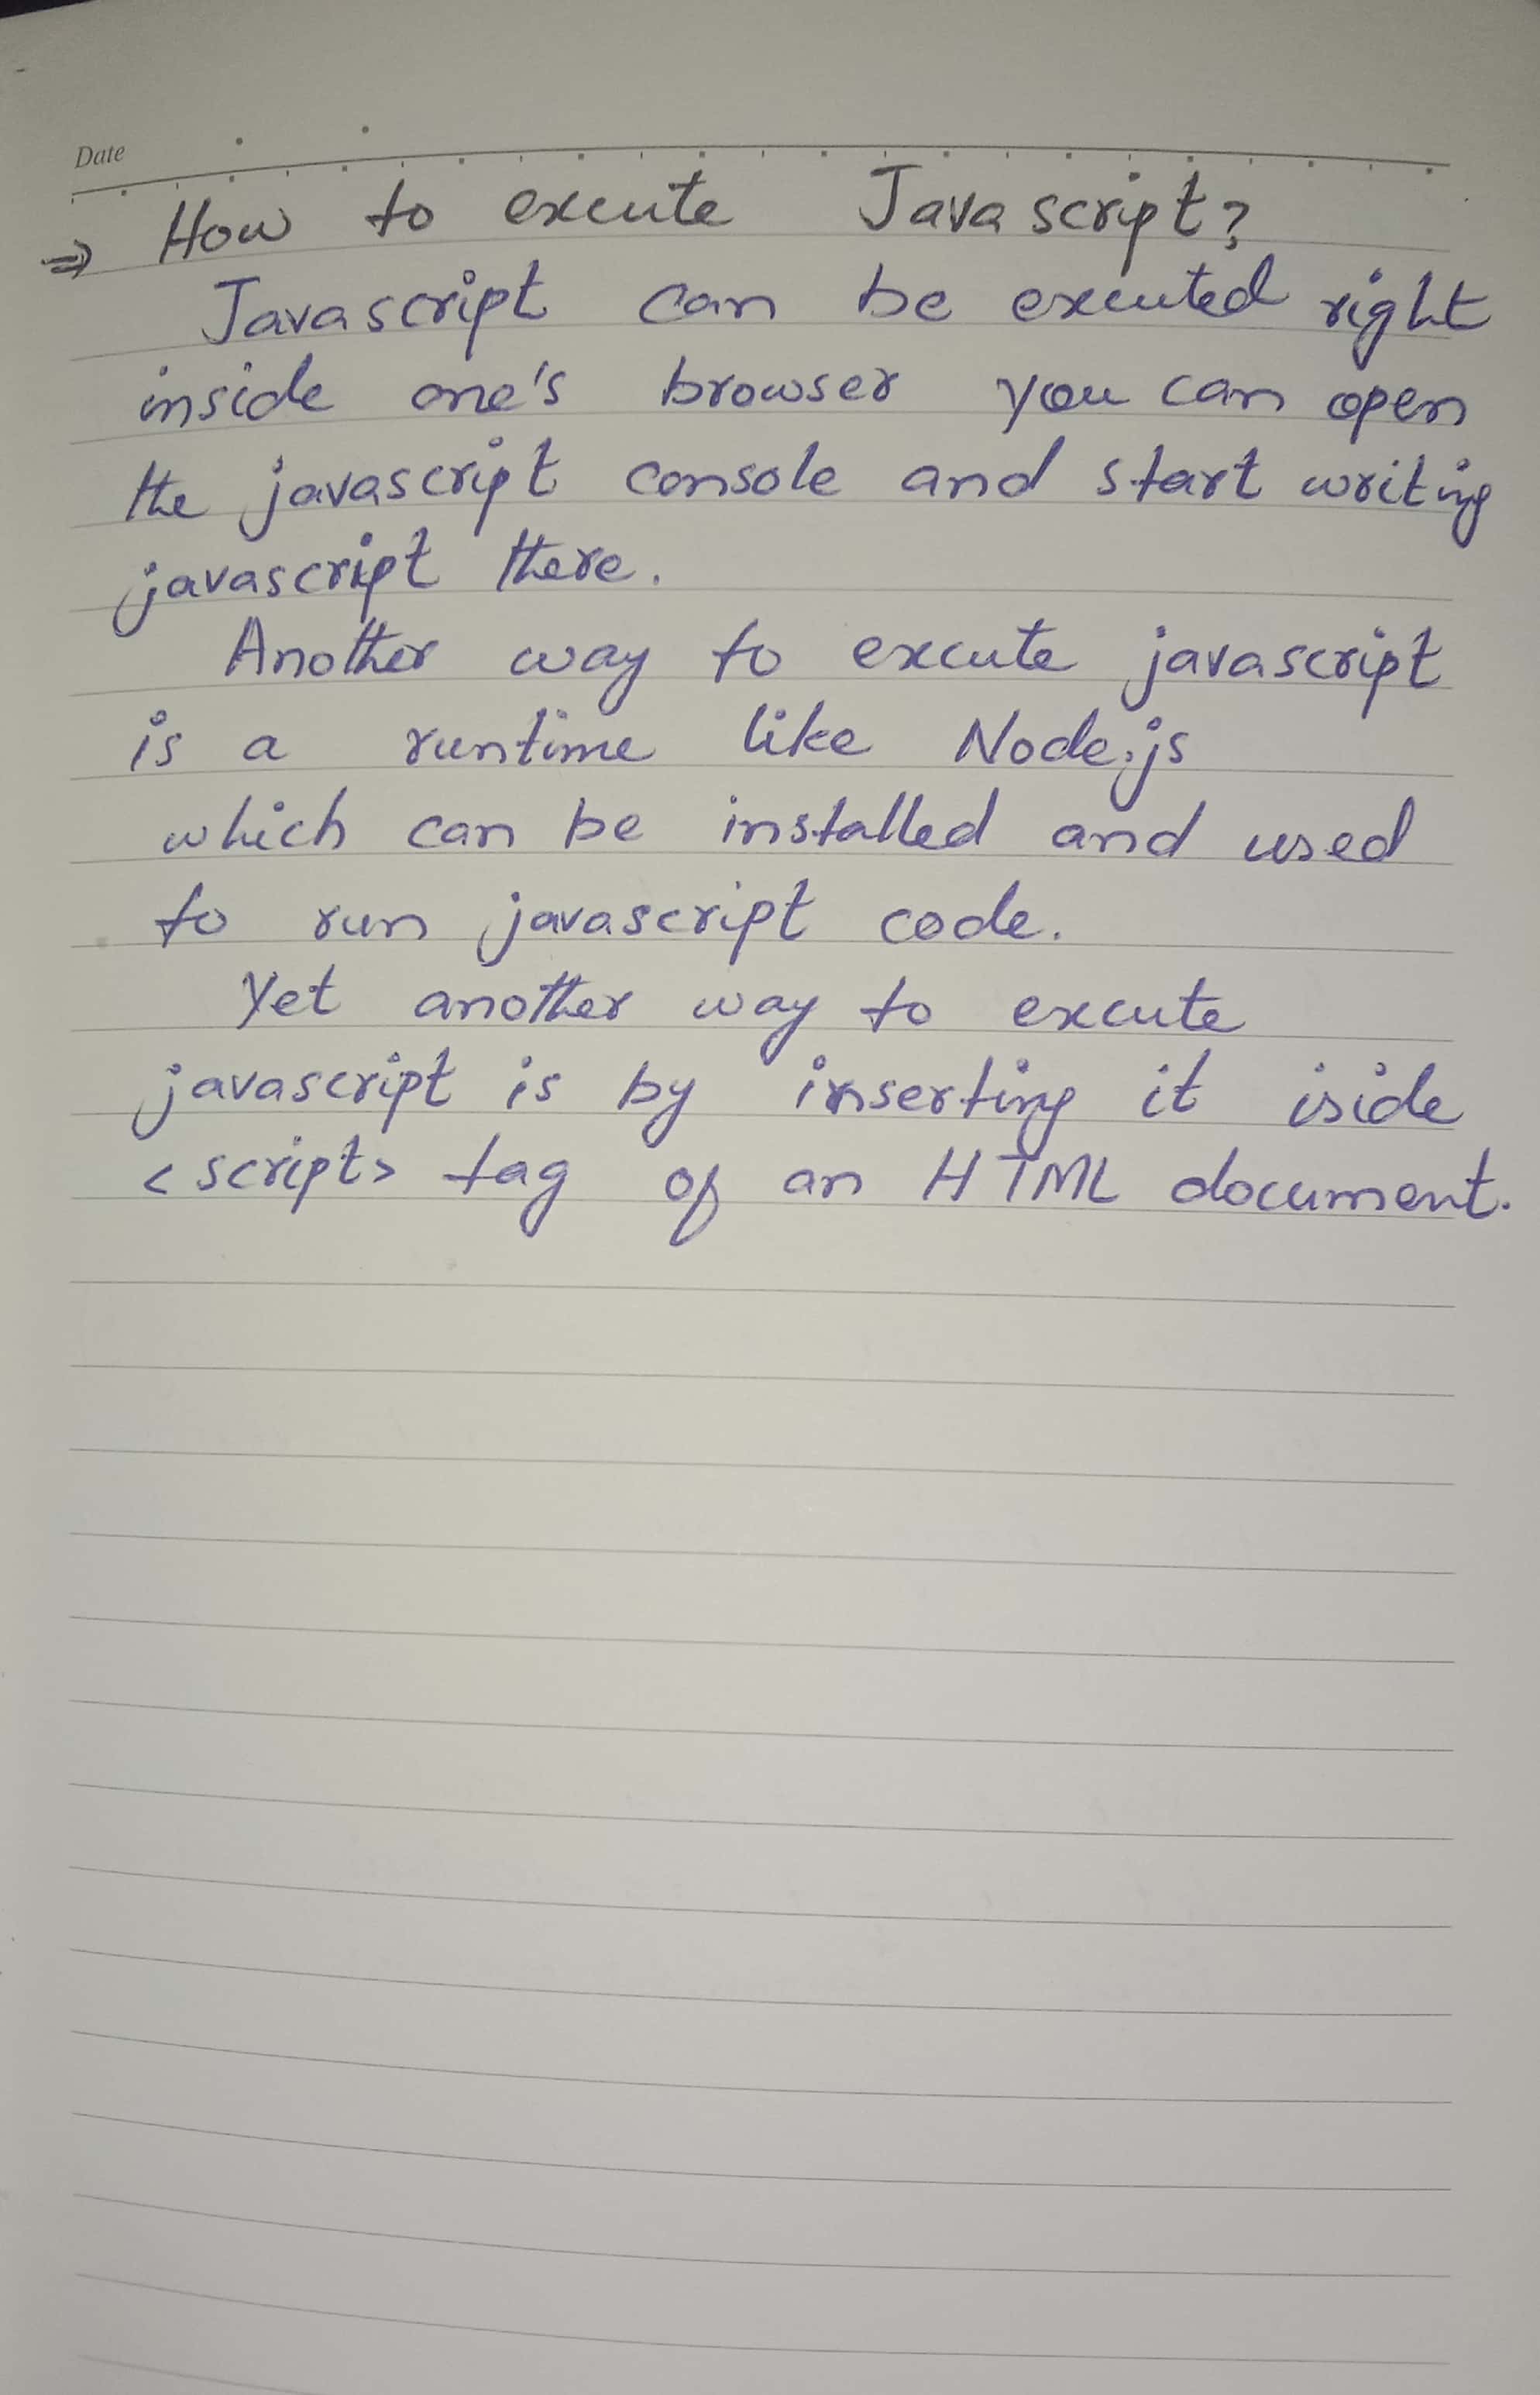 Date
⇒ How to excute Javascript?
Javascript can be excuted right
inside one's browser you can open
the javascript console and start writing
javascript there.
Another way to excute javascript
is a runtime like Node.js
which can be installed and used
to run javascript code.
Yet another way to excute
javascript is by inserting it iside
<script> tag of an HTML document.